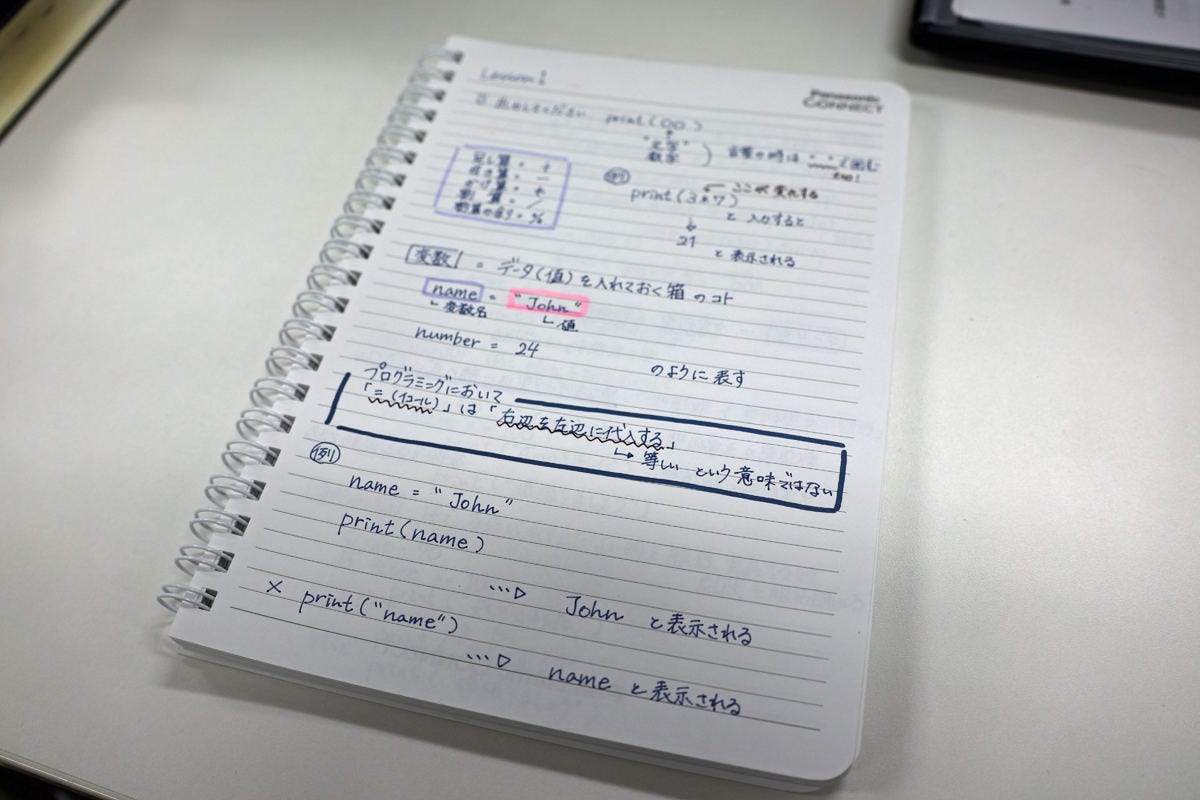 Lesson 1
Panasonic
CONNECT
出力してください print(○○)
"文字"
数字
言葉の時は " " で囲む
足し算 = +
引き算 = -
かけ算 = *
割り算 = /
割算の余り = %
例
print(3*7) ← ここが変化する
と入力すると
↓
21
と表示される
変数 = データ(値)を入れておく箱のコト
name = "John"
↳ 変数名
↳ 値
number = 24
のように表す
プログラミングにおいて
「= (イコール)」は「右辺を左辺に代入する」
↳ 等しいという意味ではない
例
name = "John"
print(name)
…▷ John と表示される
× print("name")
…▷ name と表示される